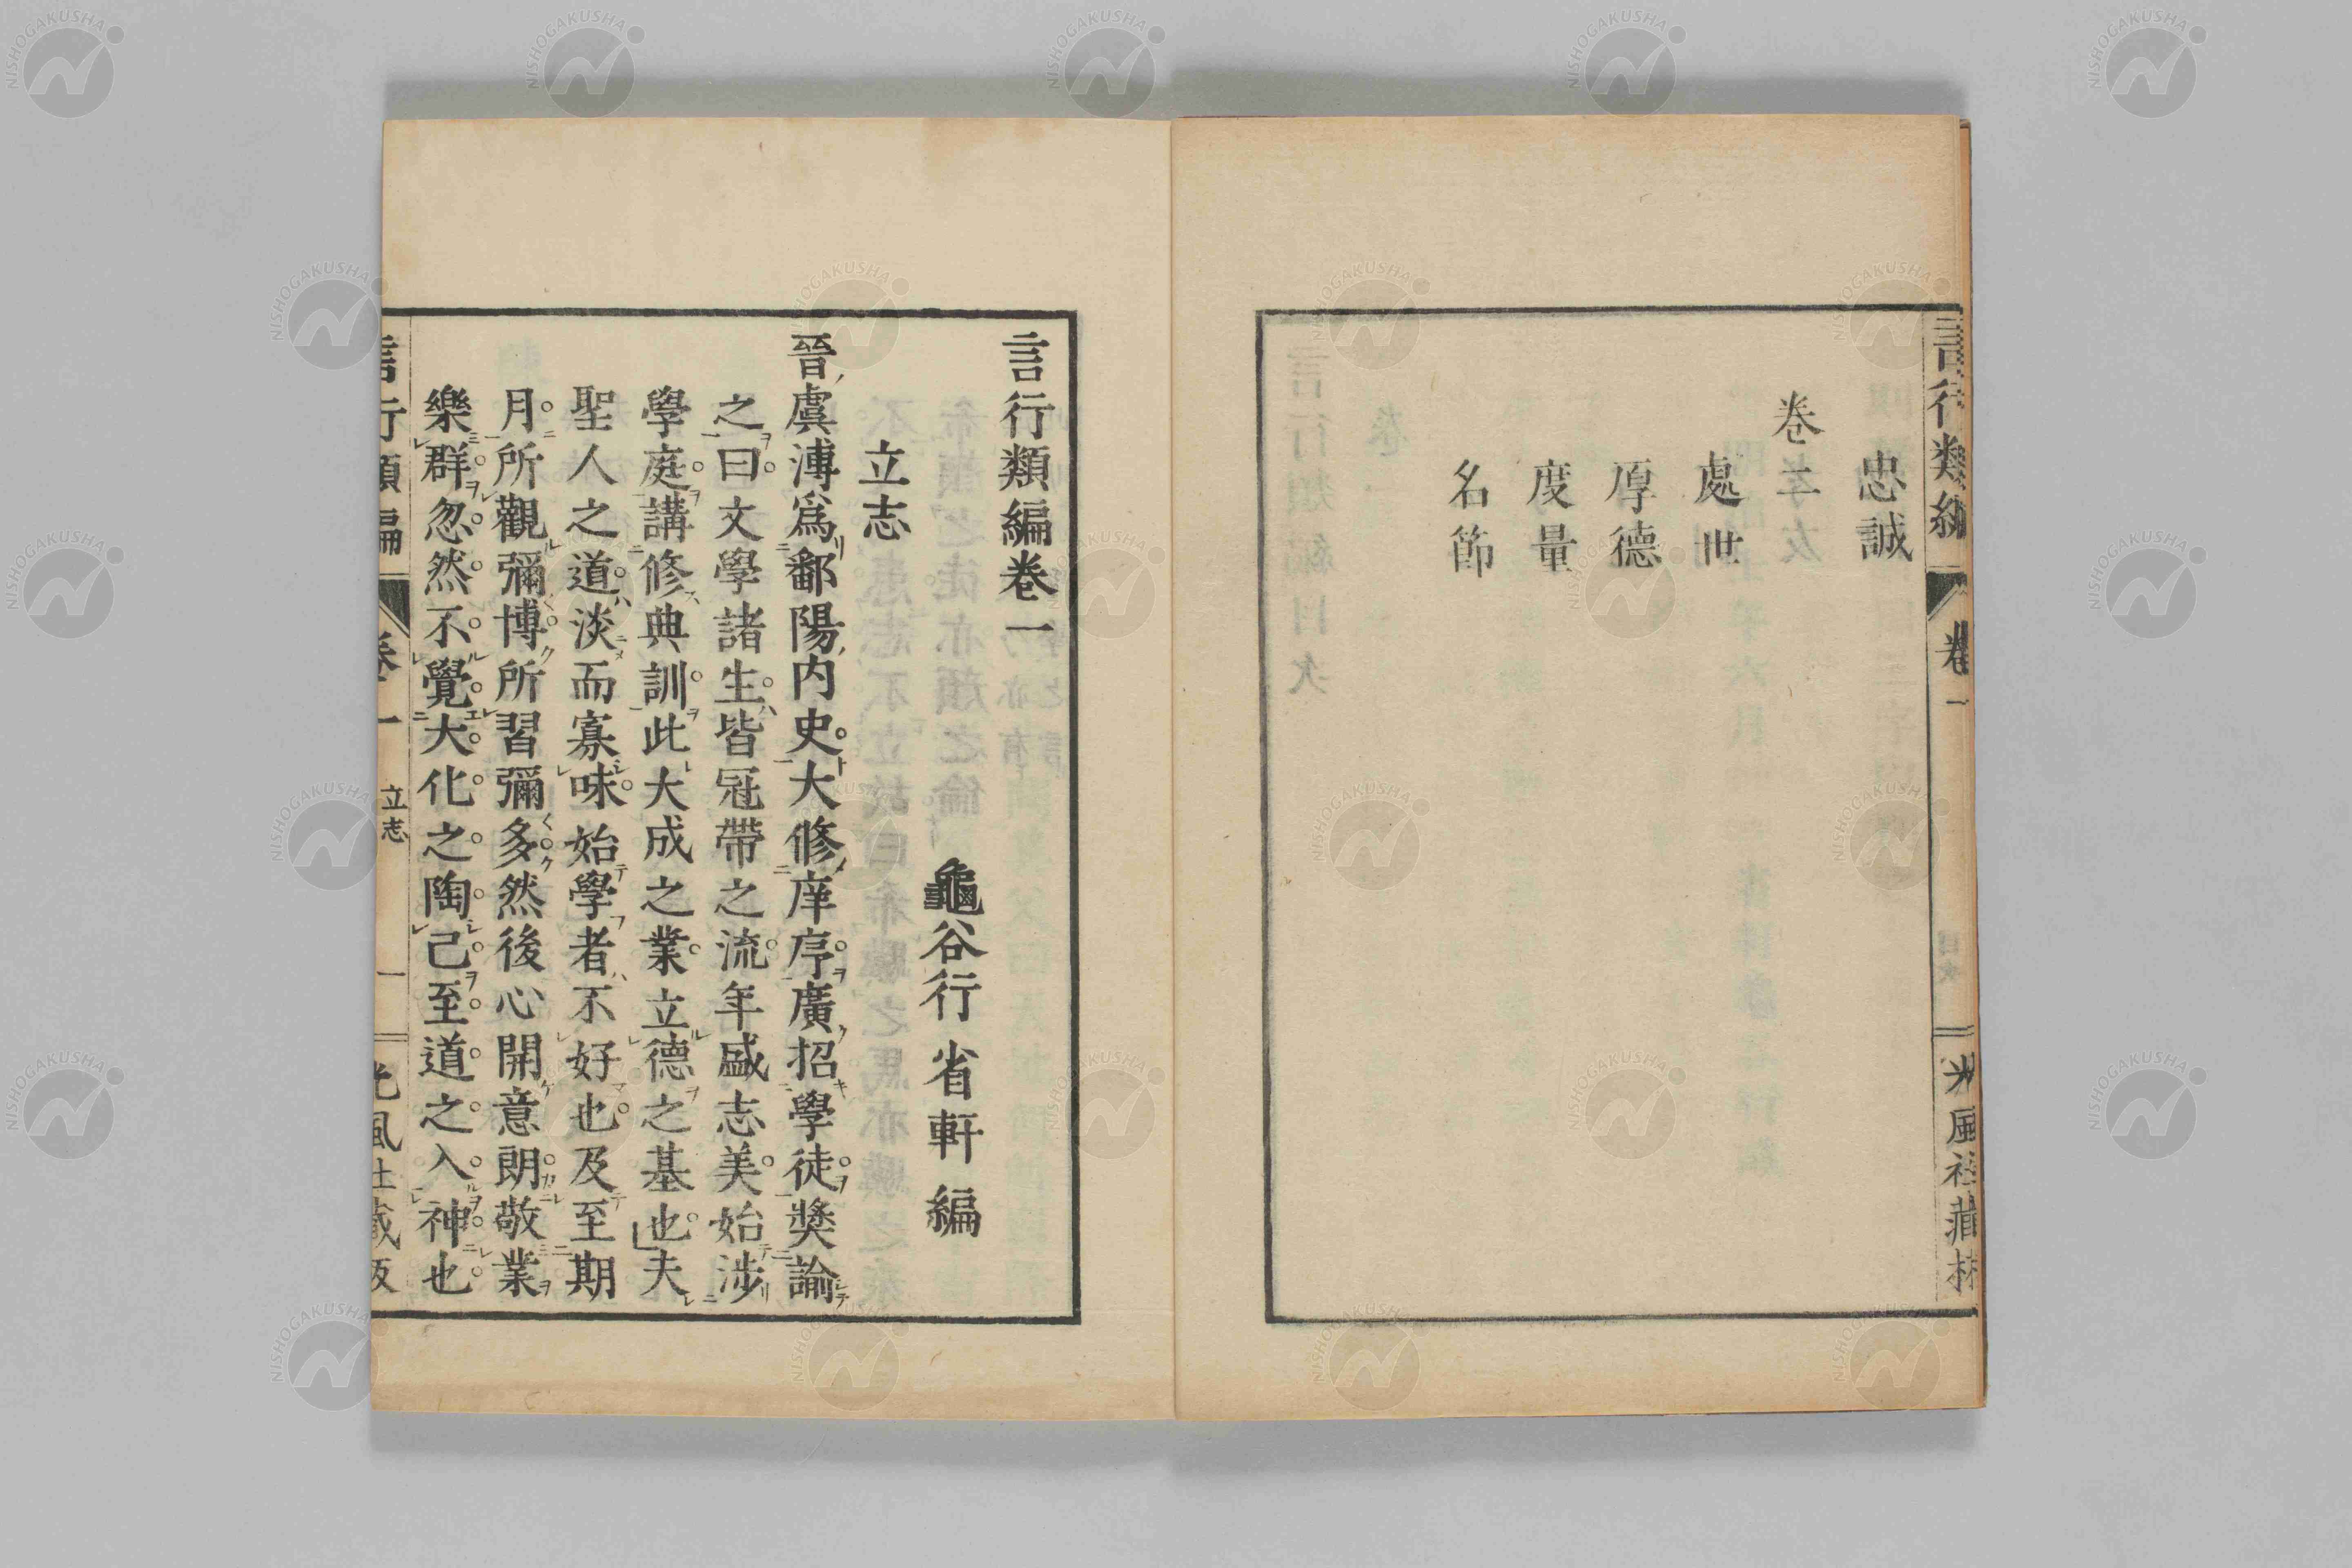 忠誠
卷二
處世
厚德
度量
名節
言行類編 卷一 目次 光風社藏
言行類編卷一
龜谷行省軒編
立志
晉虞溥爲鄱陽内史大修庠序廣招學徒奬諭
之曰文學諸生皆冠帶之流年盛志美始涉
學庭講修典訓此大成之業立德之基也夫
聖人之道淡而寡味始學者不好也及至期
月所觀彌博所習彌多然後心開意朗敬業
樂群忽然不覺大化之陶己至道之入神也
言行類編 卷一 立志 一 光風社藏版
NISHOGAKUSHA